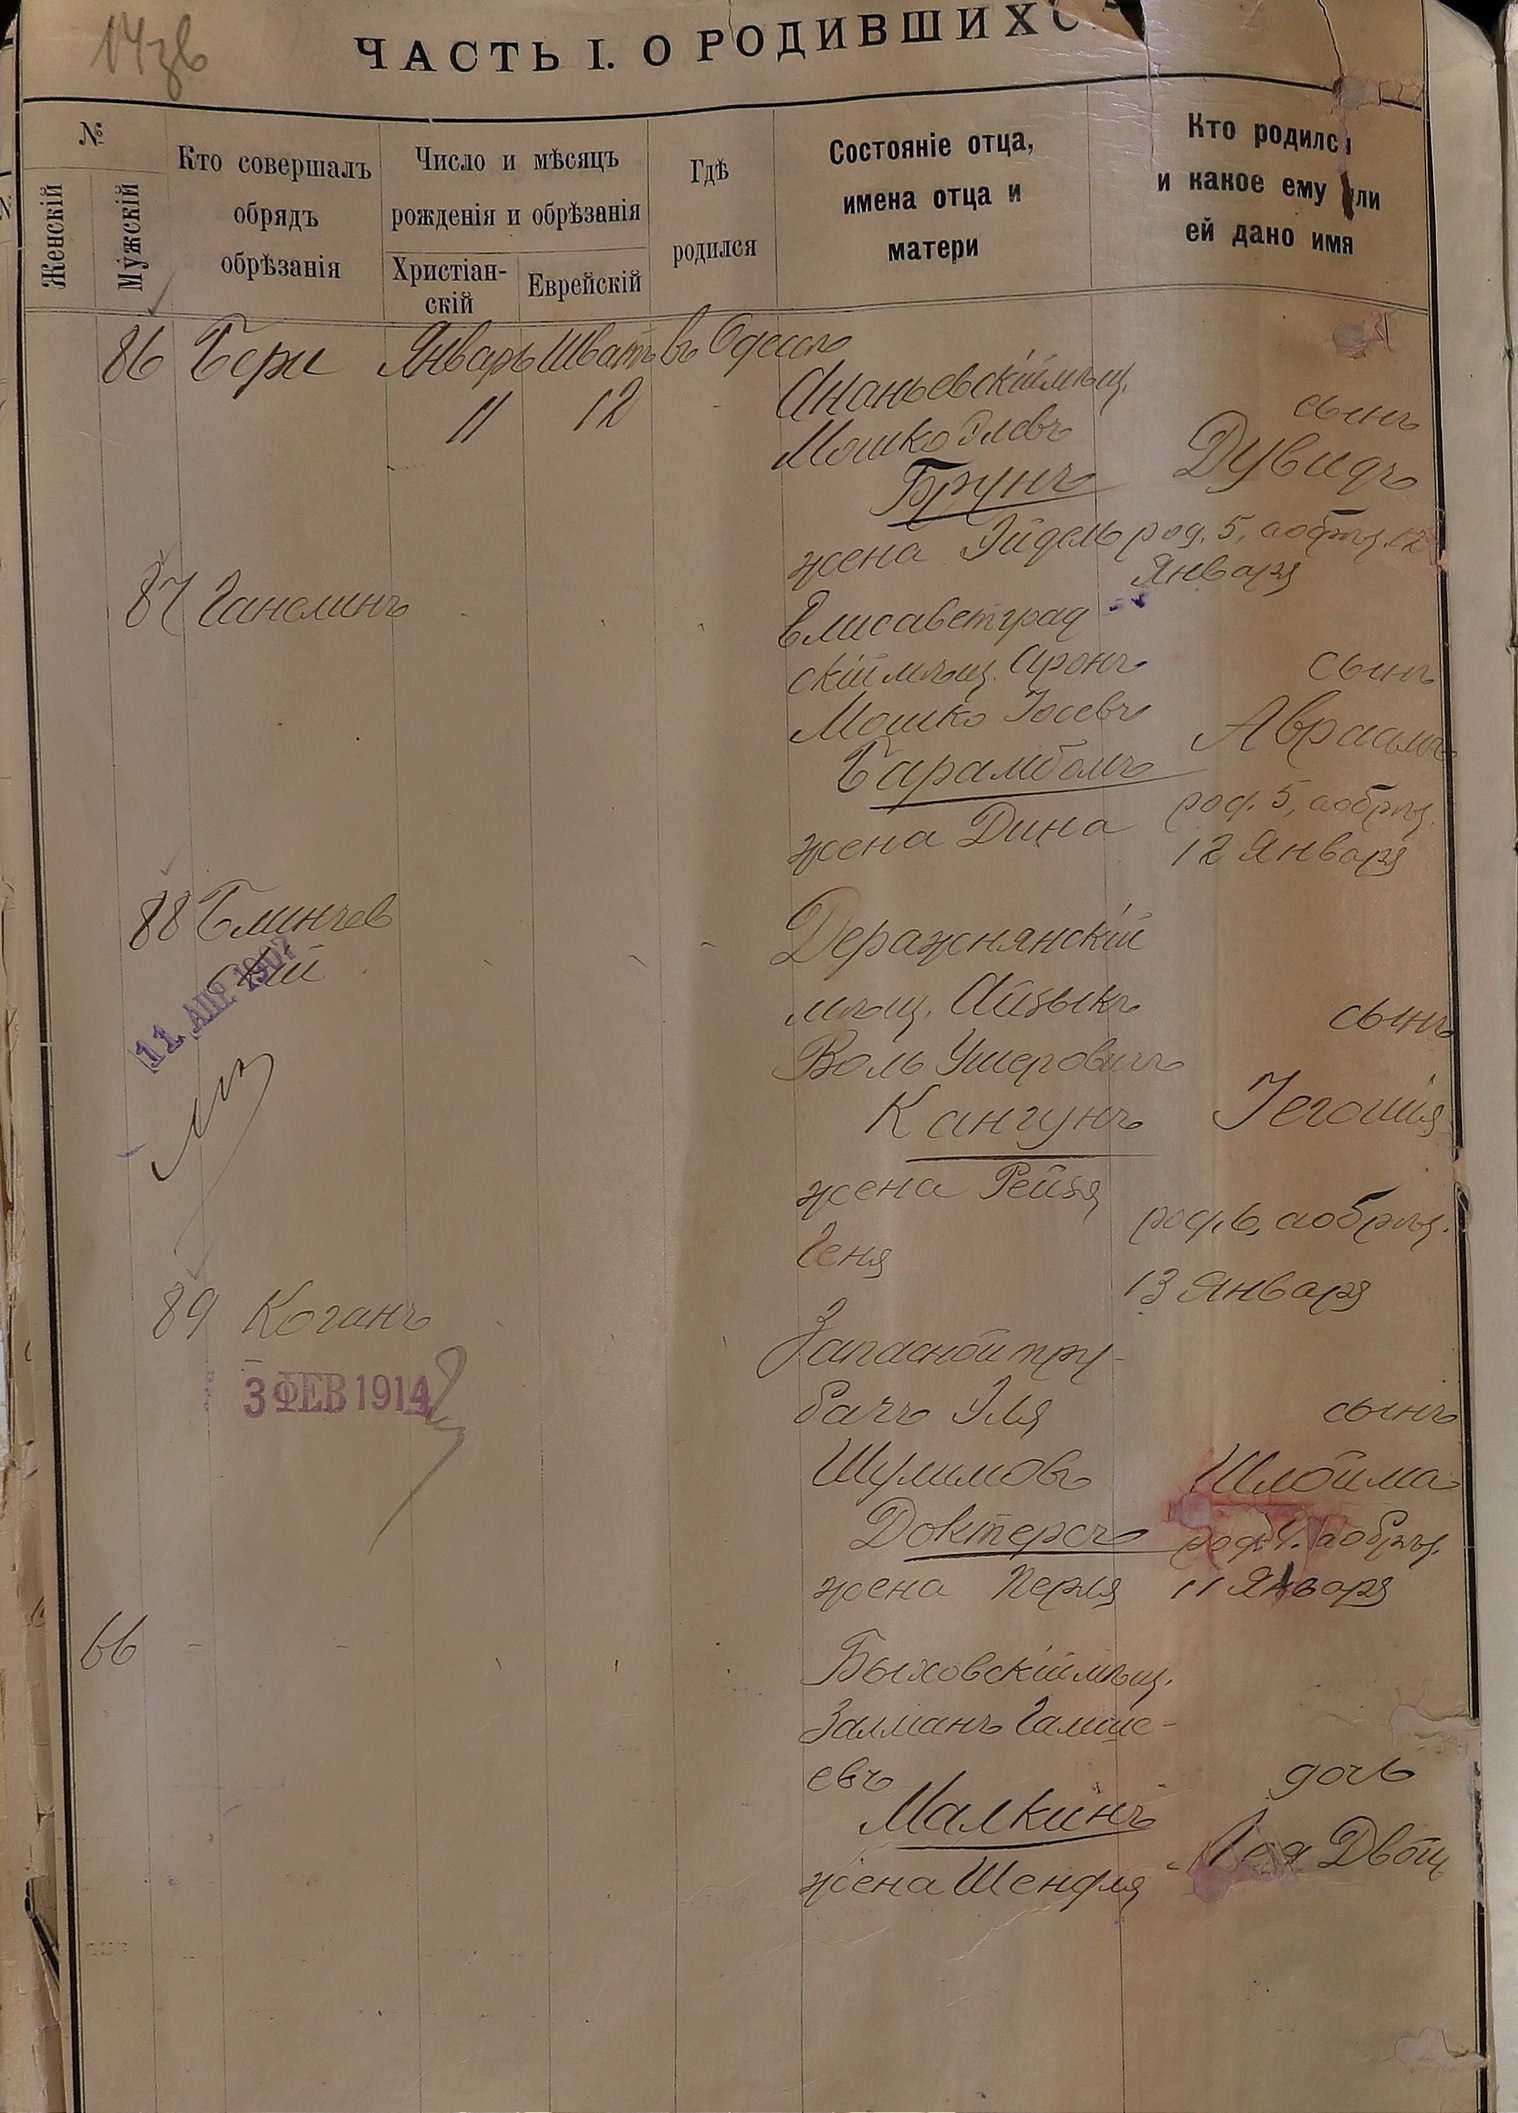 ЧАСТЬ I. О РОДИВШИХС
№
Женскій
Мужскій
Кто совершалъ
обрядъ
обрѣзанія
Число и мѣсяцъ
рожденія и обрѣзанія
Христіан-
скій
Еврейскій
Гдѣ
родился
Состояніе отца,
имена отца и
матери
Кто родился
и какое ему или
ей дано имя
86 Бери Январь Шватъ въ Одессѣ
11 12
Ананьевскій мѣщ.
Мошко Элевъ
Брунъ
жена Эйдель
сынъ
Дувидъ
род. 5, а обрѣз. 12
Января
87 Ганелинъ
Елисаветград
скій мѣщ. Аронъ
Мошко Іосевъ
Барамбомъ
жена Дина
сынъ
Авраамъ
род. 5, а обрѣз.
12 Января
88 Блинчев
скій
11 АПР. 1907
Деражнянскій
мѣщ. Айзыкъ
Воль Ушеровичъ
Кангунъ
жена Рейзя
Геня
сынъ
Іегошія
род. 6, а обрѣз.
13 Января
89 Коганъ
3 ФЕВ 1914
Запасной тру-
бачъ Эля
Шулимовъ
Доктерсъ
жена Перля
сынъ
Шлойма
род. 4. а обрѣз.
11 Января
66
Быховскій мѣщ.
Залманъ Гамше-
евъ
Малкинъ
жена Шендля
дочь
Лея Двойр